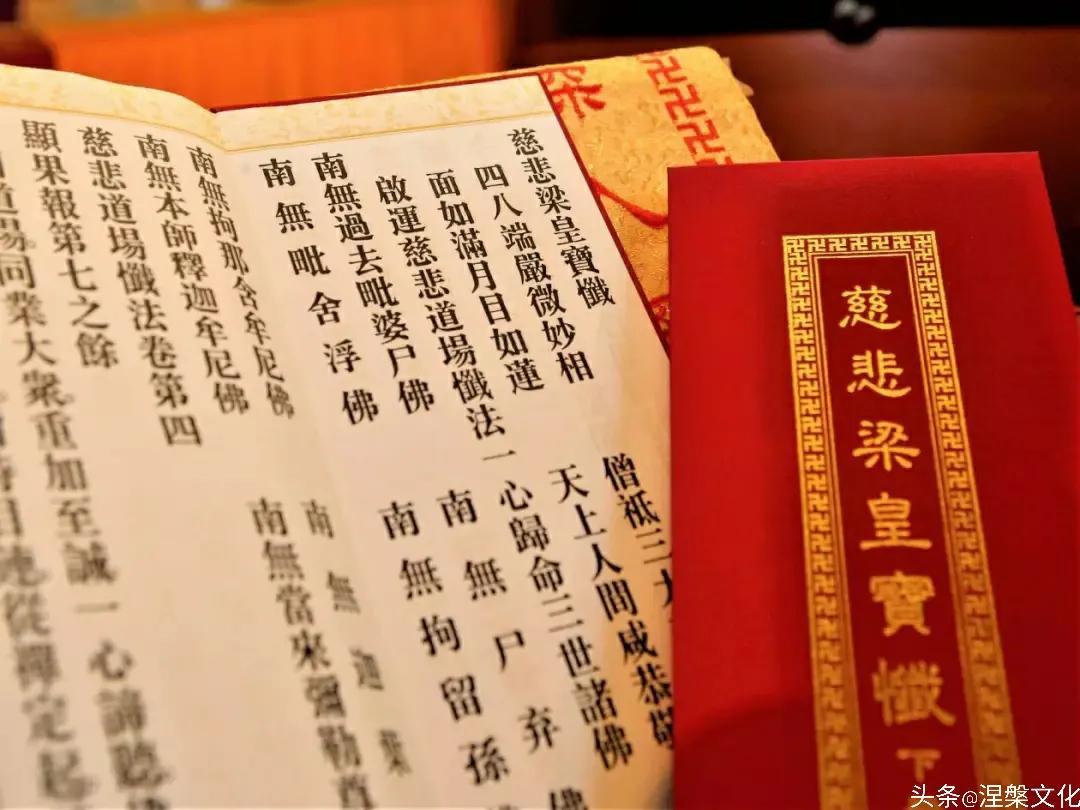 慈悲梁皇寶懺
四八端嚴微妙相 僧祇三大
面如滿月目如蓮 天上人間咸恭敬
啟運慈悲道場懺法一心歸命三世諸佛
南無過去毗婆尸佛 南無尸弃佛
南無毗舍浮佛 南無拘留孫
南無拘那含牟尼佛 南無迦葉
南無本師釋迦牟尼佛 南無當來彌勒
慈悲道場懺法卷第四
顯果報第七之餘
日道場同業大衆重加至誠一心諦聽
時目連從禪定起
慈悲梁皇寶懺下
头条@涅槃文化